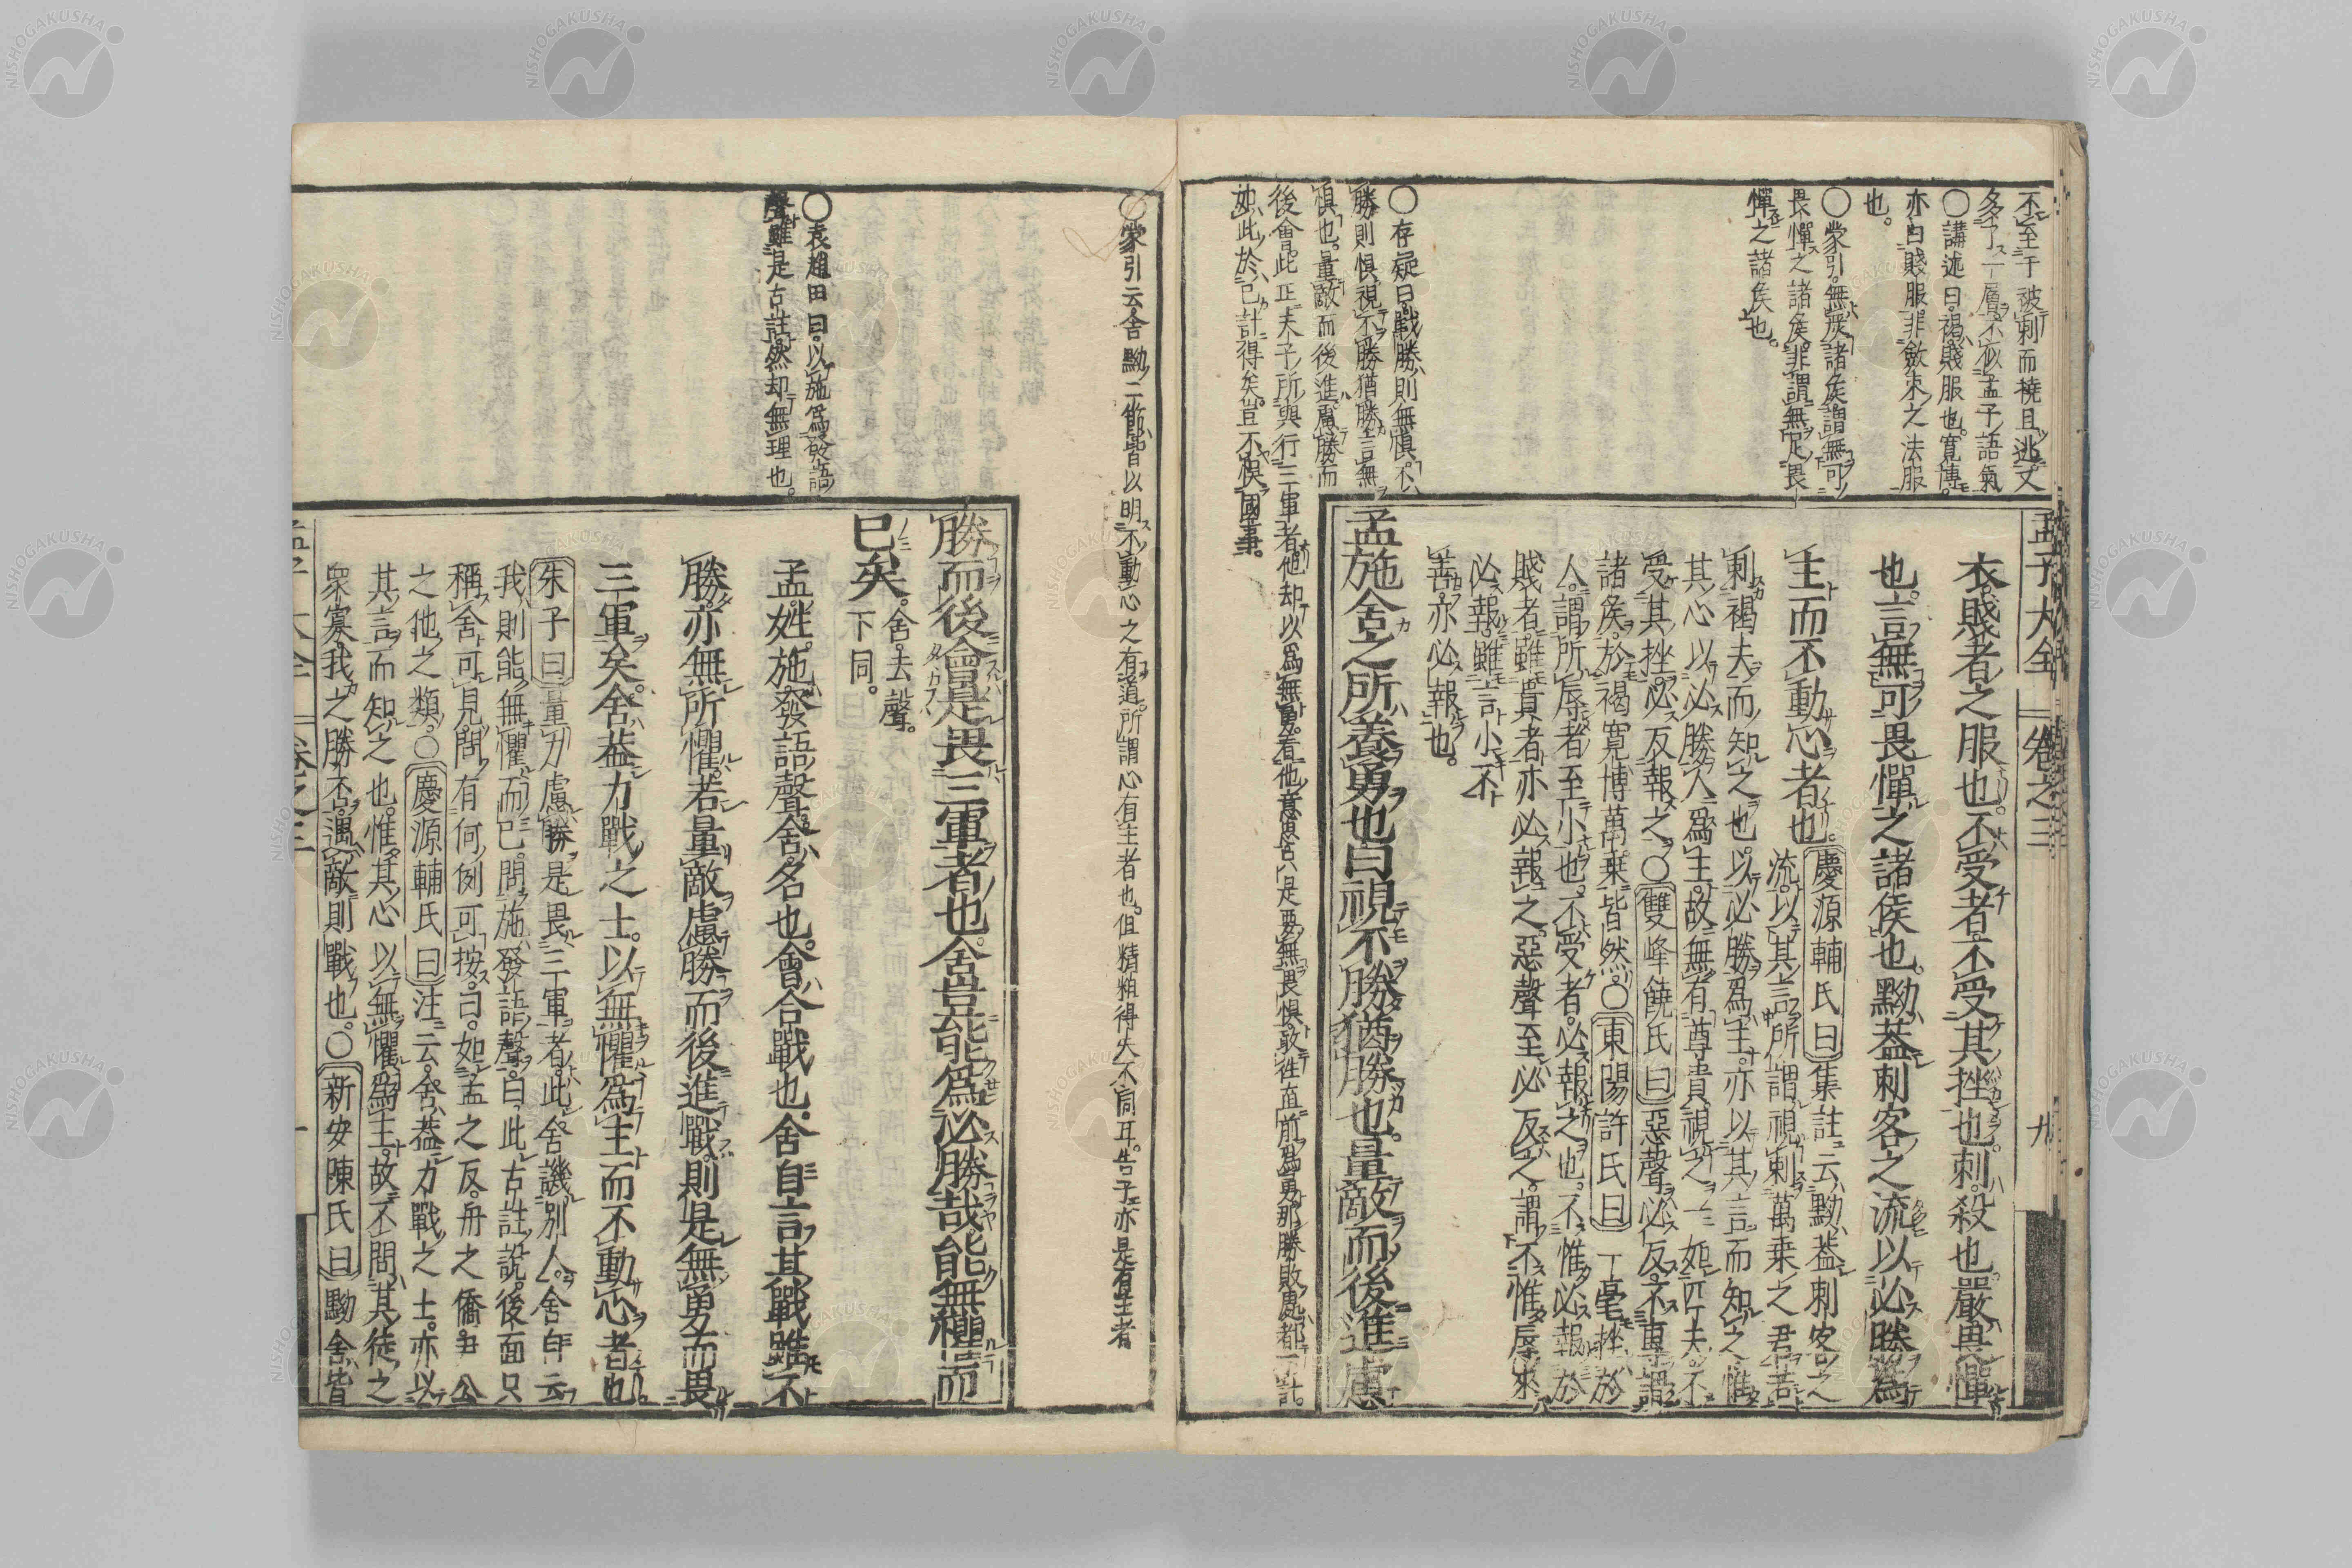 不至于被刺而撓且逃丈
多了一層不似孟子語氣
〇講述曰褐賤服也寛博
亦曰賤服非斂束之法服
也。
〇蒙引無嚴諸矦謂無可
畏憚之諸矦非謂無足畏
憚之諸矦也。
〇存疑曰戰勝則無惧。不
勝則惧視不勝猶勝言無
惧也。量敵而後進慮勝而
後會。此正夫子所與行三軍者他却以為無勇。看他意思舍八是要無畏惧敢徃直前為勇。那勝敗處都不計。
如此於已計得矣。豈不悞國事。
孟子大全 卷之三 九
衣賤者之服也。不受者不受其挫也。刺。殺也。嚴畏憚
也。言無可畏憚之諸侯也。黝葢刺客之流以必勝為
主而不動心者也。慶源輔氏曰集註云黝葢刺客之
流。以其言所謂視刺萬乗之君若
刺褐夫而知之也。以必勝為主。亦以其言而知之惟
其心以必勝人為主。故無有尊貴視之一如匹夫。不
受其挫。必反報之。〇雙峰饒氏曰惡聲必反。不專謂
諸矦。於褐寛博萬乗皆然。〇東陽許氏曰一毫挫於
人。謂所辱者至小也。不受者。必報之也。不惟必報於
賤者。雖貴者亦必報之。惡聲至必反之。謂不惟辱來
必報。雖言小不
善。亦必報也。
孟施舍之所養勇也曰視不勝猶勝也。量敵而後進慮
〇蒙引云舍黝二節皆以明不動心之有道所謂心有主者也。但精粗得失不同耳。告子亦是有主者
〇袁趙田曰以施為發語
聲雖是古註然却無理也。
勝而後會是畏三軍者也舍豈能為必勝哉能無懼而
已矣。舍去聲。
下同。
孟姓。施發語聲。舍名也。會合戰也。舍自言其戰雖不
勝。亦無所懼。若量敵慮勝而後進戰。則是無勇而畏
三軍矣。舍葢力戰之士。以無懼為主而不動心者也
朱子曰量力慮勝是畏三軍者。此舍譏別人。舍自云
我則能無懼而已。問施發語聲。曰此古註說。後面只
稱舍可見。問有何例可按。曰。如孟之反。舟之僑。尹公
之他之類。〇慶源輔氏曰注云舍葢力戰之士。亦以
其言而知之也。惟其心以無懼為主。故不問其徒之
衆寡我之勝否。遇敵則戰也。〇新安陳氏曰黝舍皆